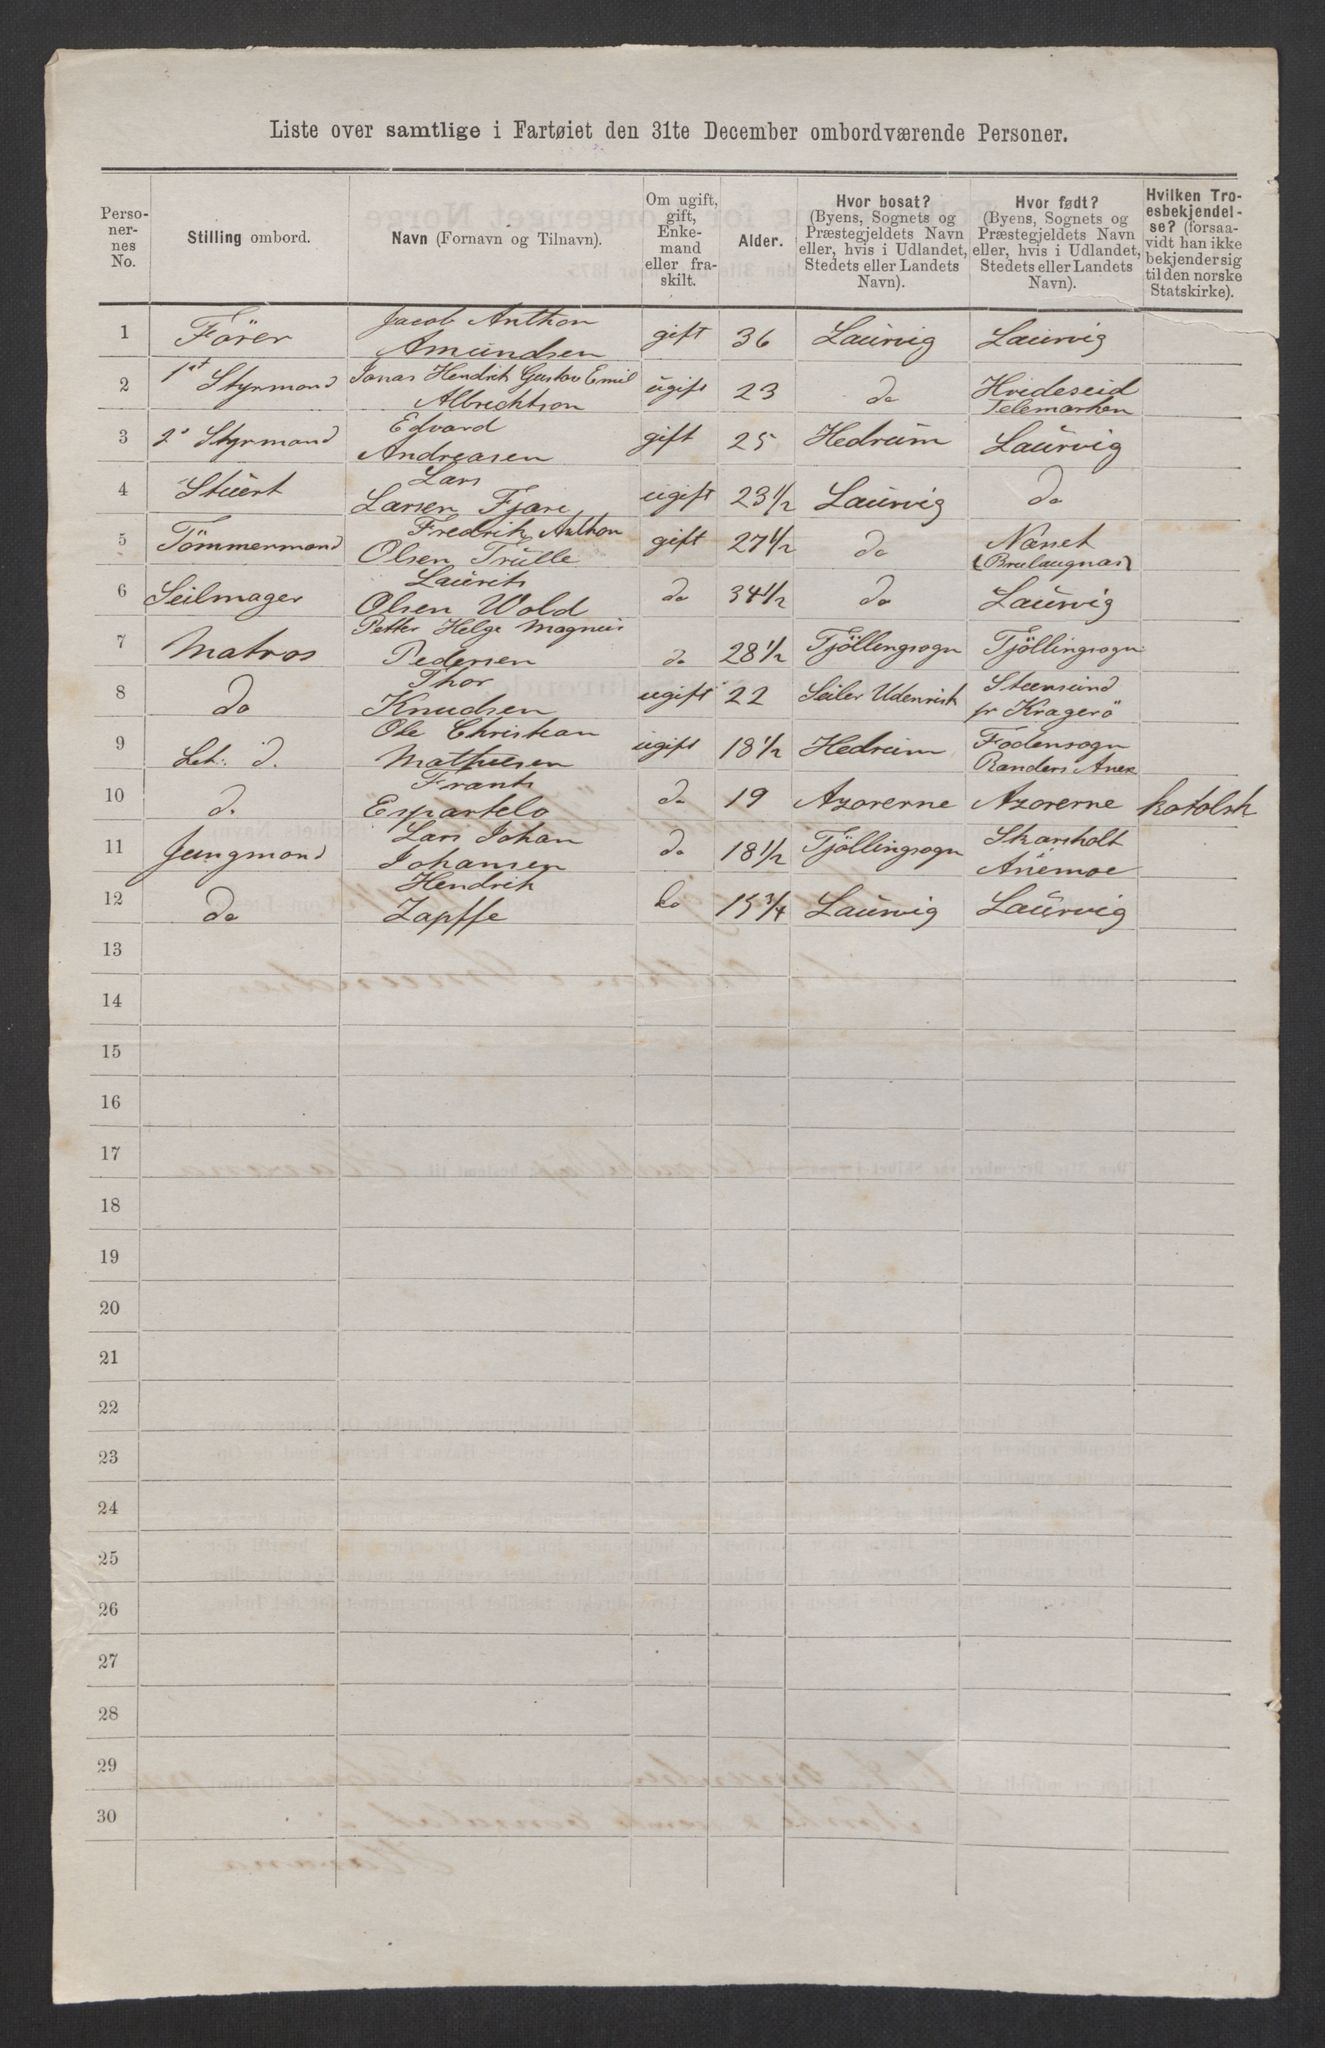 Liste over samtlige i Fartøiet den 31te December ombordværende Personer.
Perso-
ner-
nes
No.
Stilling ombord.
Navn (Fornavn og Tilnavn).
Om ugift,
gift,
Enke-
mand
eller fra-
skilt.
Alder.
Hvor bosat?
(Byens, Sognets og
Præstegjeldets Navn
eller, hvis i Udlandet,
Stedets eller Landets
Navn).
Hvor født?
(Byens, Sognets og
Præstegjeldets Navn
eller, hvis i Udlandet,
Stedets eller Landets
Navn).
Hvilken Tro-
esbekjendel-
se? (forsaa-
vidt han ikke
bekjender sig
til den norske
Statskirke).
1 Förer Jacob Anthon
Amundsen gift 36 Laurvig Laurvig
2 1st Styrmand Jonas Hendrik Gustav Emil
Albrechtson ugift 23 do Hvideseid
Telemarken
3 2 Styrmand Edvard
Andreasen gift 25 Hedrum Laurvig
4 Stuert Lars
Larsen Fjære ugift 23 1/2 Laurvig do
5 Tömmermand Fredrik Anthon
Olsen Trulle gift 27 1/2 do Næset
(Brulaugnæs)
6 Seilmager Laurits
Olsen Wold do 34 1/2 do Laurvig
7 Matros Petter Helge Magnus
Pedersen do 28 1/2 Tjöllingsogn Tjöllingsogn
8 do Thor
Knudsen ugift 22 Seiler Udenrisk
pr Kragerö
9 Let. d. Ole Christian
Mathisen ugift 18 1/2 Hedrum
10 d. Frants
Espartelo do 19 Azorerne Azorerne katolsk
11 Jungmand Lars Johan
Johansen do 18 1/2 Tjöllingsogn Skarsholt
12 do Hendrik
Zapffe do 15 3/4 Laurvig Laurvig
13
14
15
16
17
18
19
20
21
22
23
24
25
26
27
28
29
30